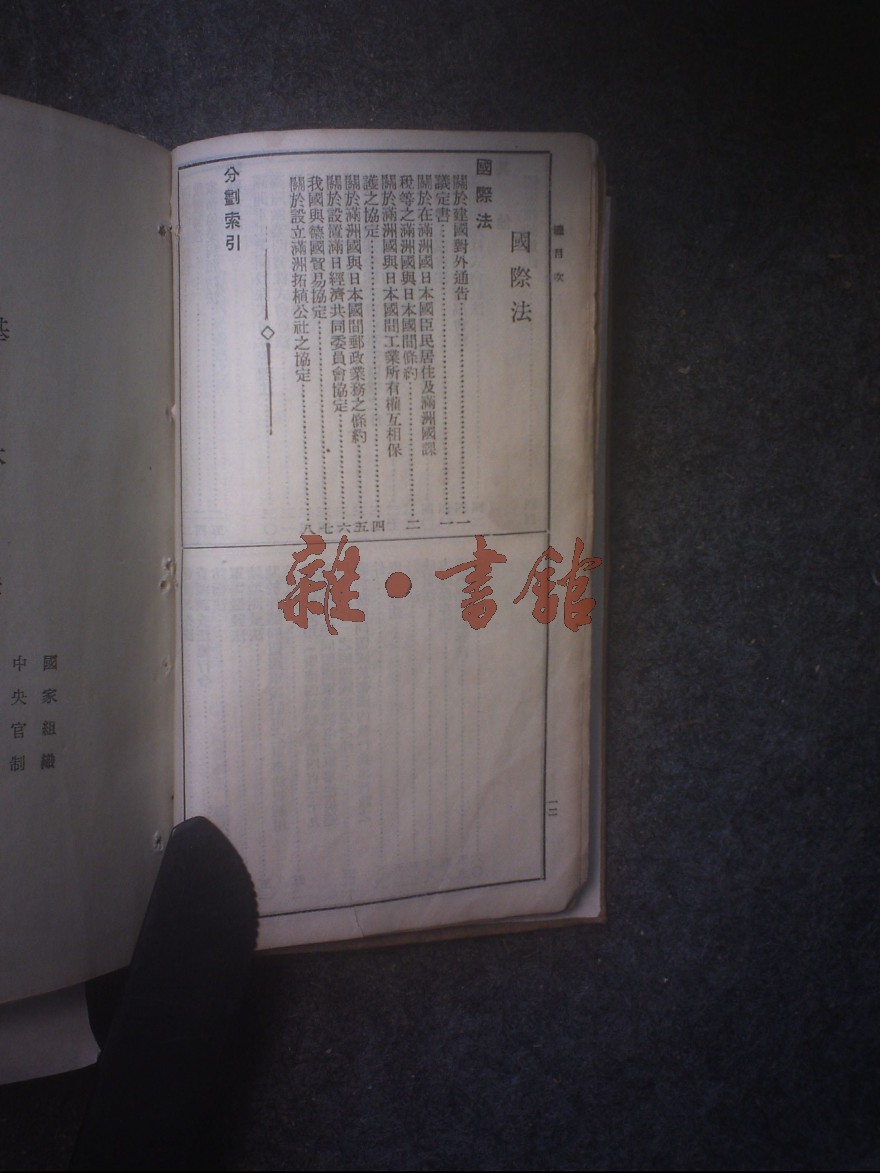 總目次
國際法
國際法
關於建國對外通告……一
議定書……一
關於在滿洲國日本國臣民居住及滿洲國課
稅等之滿洲國與日本國間條約……二
關於滿洲國與日本國間工業所有權互相保
護之協定……四
關於滿洲國與日本國間郵政業務之條約……五
關於設置滿日經濟共同委員會協定……六
我國與德國貿易協定……七
關於設立滿洲拓植公社之協定……八
分劃索引
一二
雜・書館
國家組織
中央官制